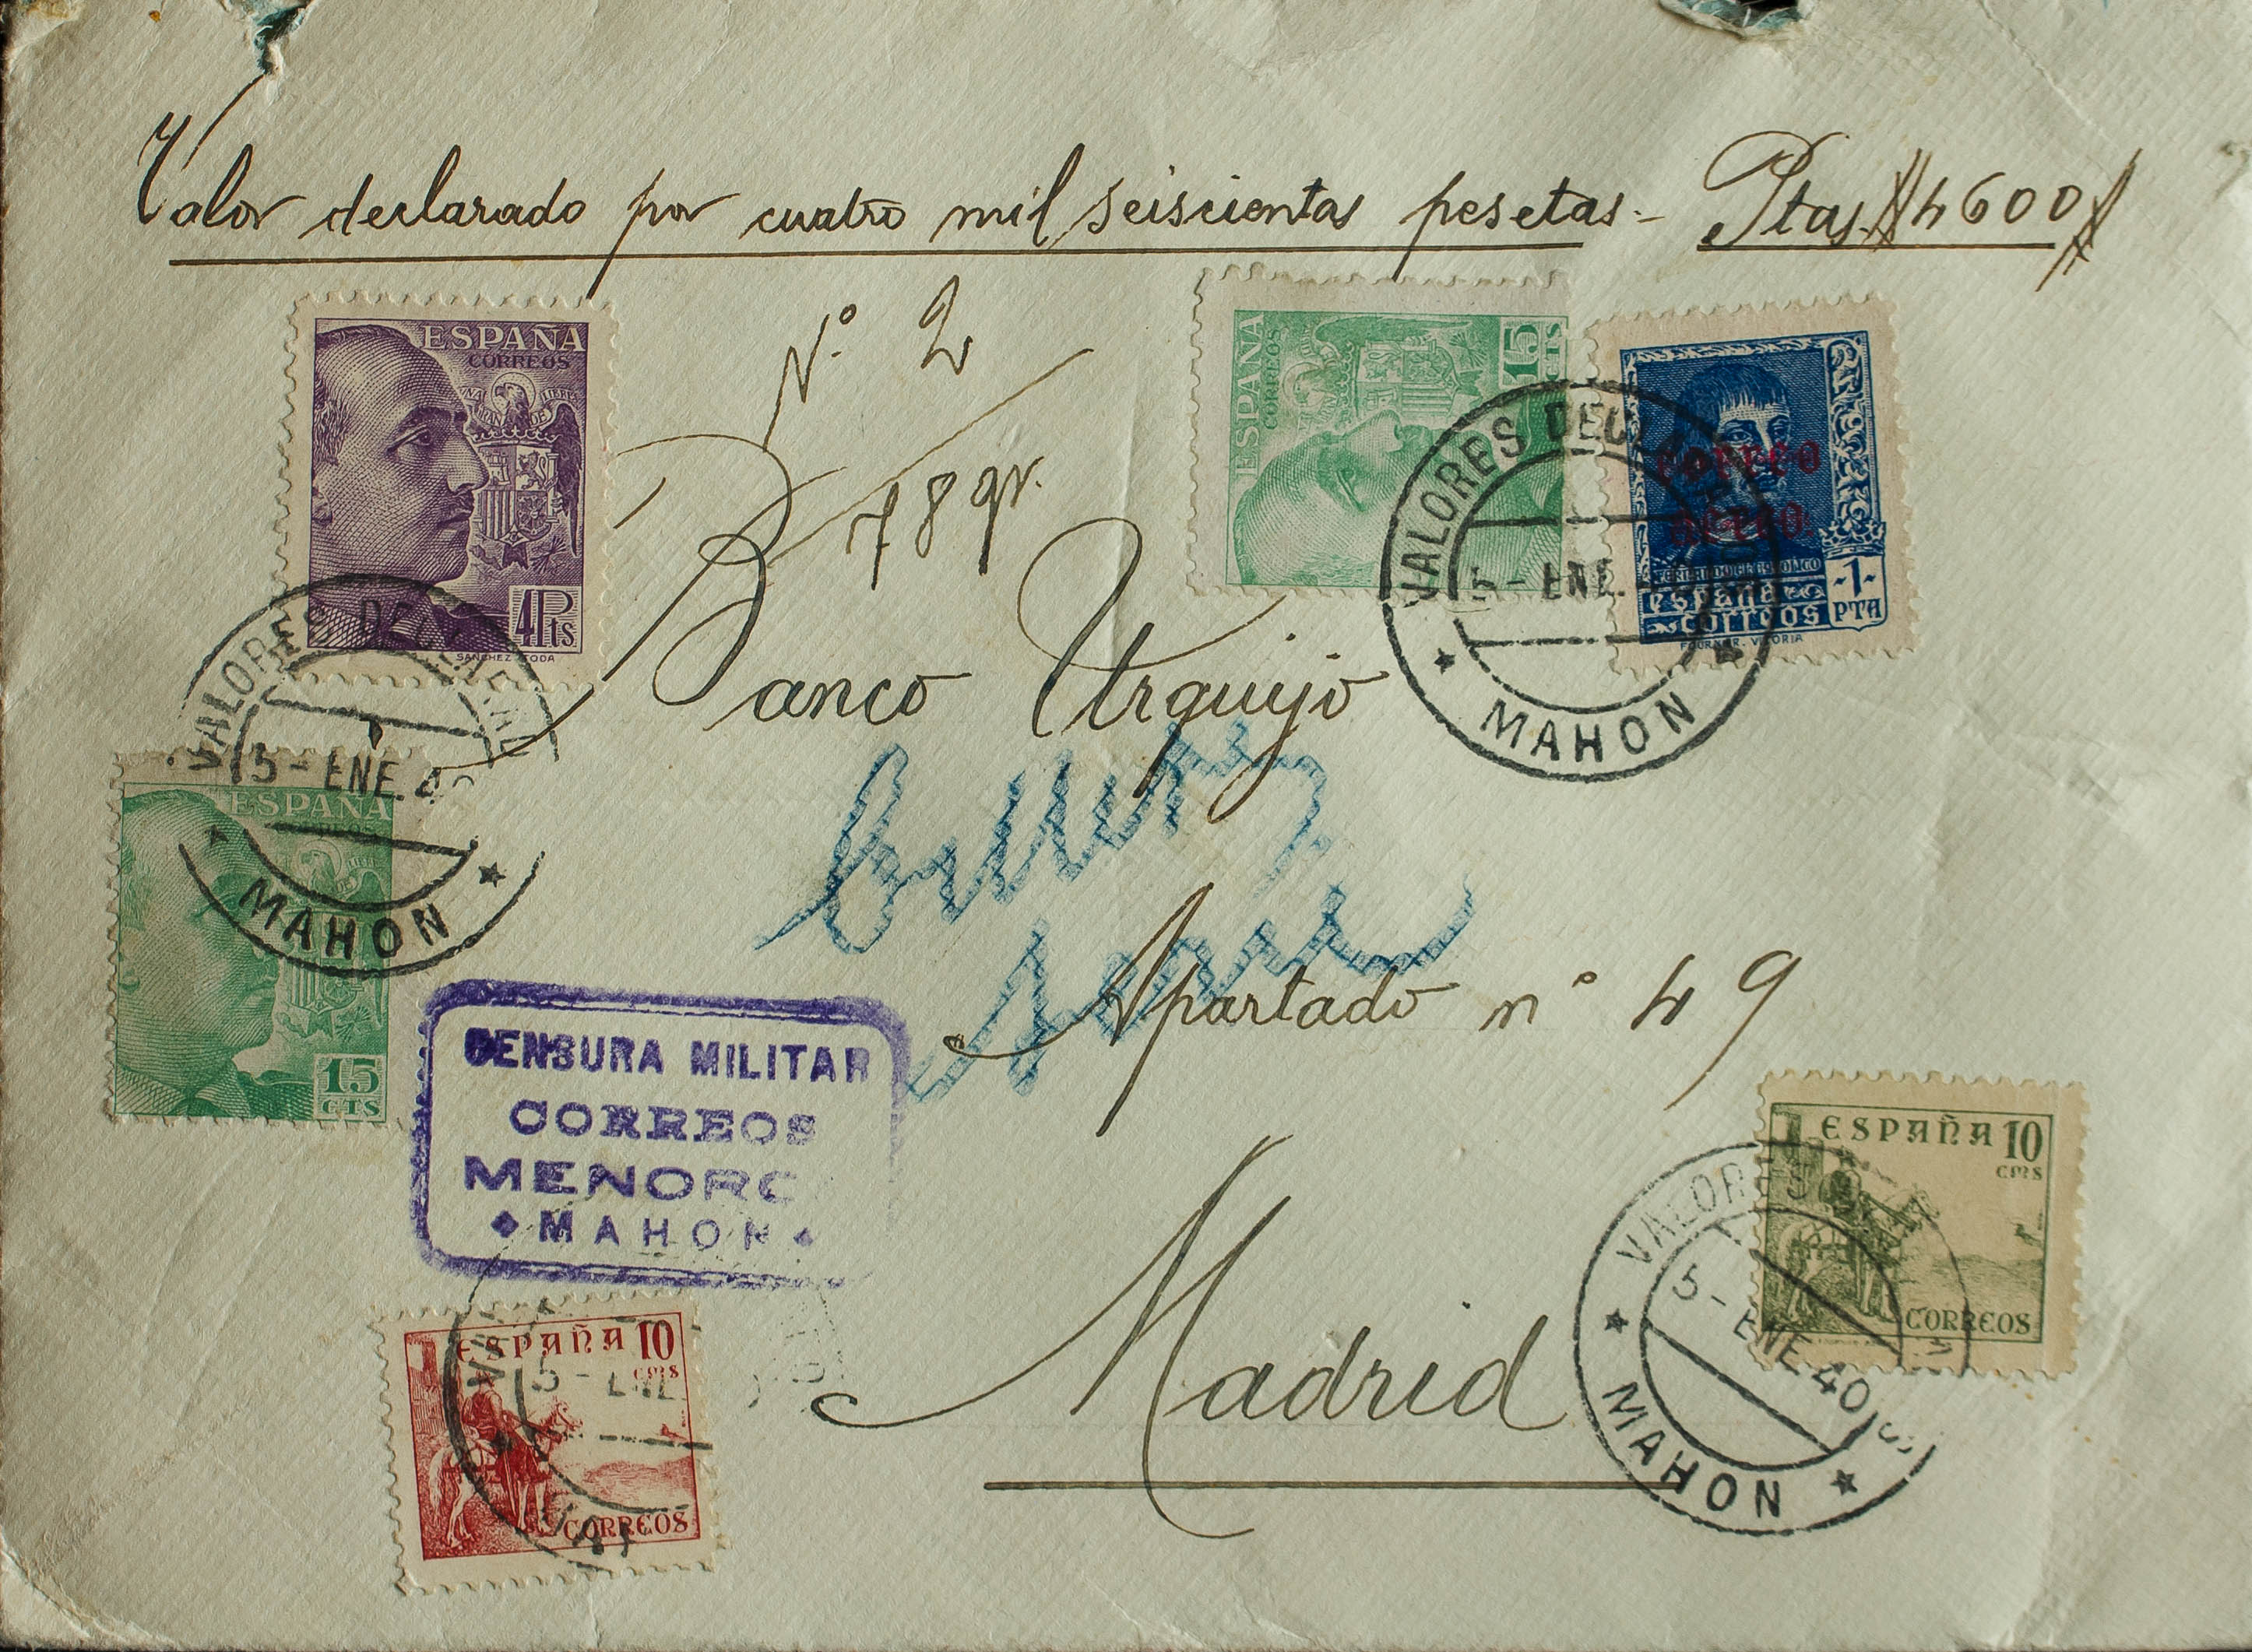 Valor declarado por cuatro mil seiscientas pesetas.- Ptas #4600#
Nº 2
78 gr.
ESPAÑA
CORREOS
UNA GRANDE LIBRE
4Pts
SANCHEZ TODA
ESPAÑA
CORREOS
15
CTS
correo
aereo
FERNANDO EL CATOLICO
españa
correos
-1-
PTA
FOURNIER. VITORIA
VALORES DECLARADOS
5 - ENE. 40
MAHON
Banco Urquijo
VALORES DECLARADOS
5 - ENE. 40
MAHON
ESPAÑA
15
CTS
Apartado nº 49
CENSURA MILITAR
CORREOS
MENORC
MAHON
ESPAÑA 10
cms
CORREOS
VALORES
5 - ENE. 40
MAHON
Madrid
ESPAÑA 10
cms
CORREOS
5 - ENE.